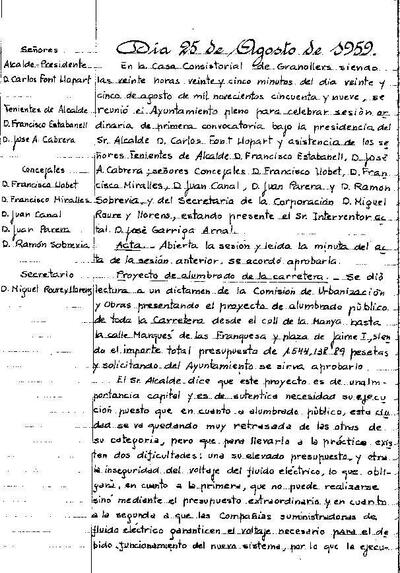 Dia 25 de Agosto de 1959.
Señores
Alcalde-Presidente
D. Carlos Font Llopart
Tenientes de Alcalde
D. Francisco Estabanell
D. Jose A. Cabrera
Concejales
D. Francisco Llobet
D. Francisco Miralles
D. Juan Canal
D. Juan Parera
D. Ramón Sobrevia
Secretario
D. Miguel Roure y Llorens
En la Casa Consistorial de Granollers siendo
las veinte horas veinte y cinco minutos del dia veinte y
cinco de agosto de mil novecientos cincuenta y nueve, se
reunió el Ayuntamiento pleno para celebrar sesión or
dinaria de primera convocatoria bajo la presidencia del
Sr. Alcalde D. Carlos Font Llopart y asistencia de los se
ñores Tenientes de Alcalde D. Francisco Estabanell, D. José
A. Cabrera, señores Concejales D. Francisco Llobet, D. Fran
cisco Miralles, D. Juan Canal, D. Juan Parera y D. Ramon
Sobrevia, y del Secretario de la Corporación D. Miguel
Roure y Llorens, estando presente el Sr. Interventor ac
tal. D. José Garriga Arnal.
Acta.- Abierta la sesión y leida la minuta del ac
ta de la sesión anterior, se acordó aprobarla.
Proyecto de alumbrado de la carretera.- Se dió
lectura a un dictamen de la Comisión de Urbanización
y Obras presentando el proyecto de alumbrado público
de toda la Carretera desde el coll de la Manya hasta
la calle Marqués de las Franquesa y plaza de Jaime I, sien
do el importe total presupuesto de 1.544,138'89 pesetas
y solicitando del Ayuntamiento se sirva aprobarlo.
El Sr. Alcalde dice que este proyecto es de una im-
portancia capital y es de autentica necesidad su ejecu
ción puesto que en cuanto a alumbrado público, esta ciu
dad se va quedando muy retrasada de las otras de
su categoria, pero que para llevarlo a la práctica exis
ten dos dificultades: una su elevado presupuesto, y otra
la inseguridad del voltaje del fluido eléctrico, lo que obli
gará, en cuanto a la primera, que no puede realizarse
sinó mediante el presupuesto extraordinario y en cuanto
a la segunda a que las Compañias suministradoras de
fluido eléctrico garanticen el voltaje necesario para el de
bido funcionamiento del nuevo sistema, por lo que la ejecu-